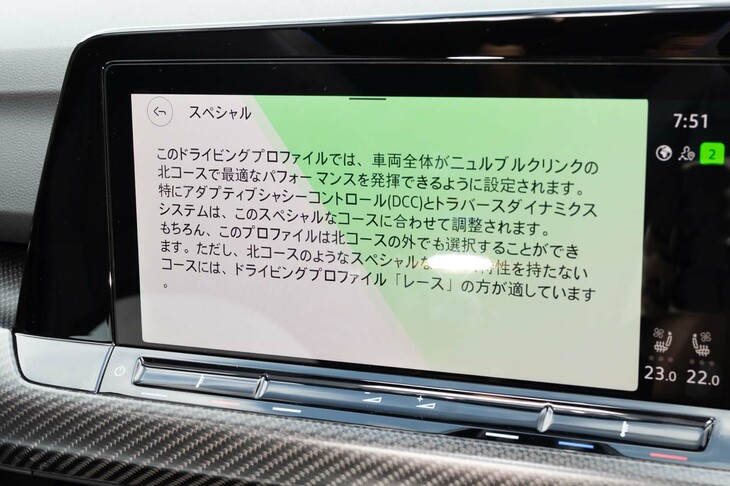 スペシャル
7:51
2
このドライビングプロファイルでは、車両全体がニュルブルクリンクの
北コースで最適なパフォーマンスを発揮できるように設定されます。
特にアダプティブシャシーコントロール(DCC)とトラバースダイナミクス
システムは、このスペシャルなコースに合わせて調整されます。
もちろん、このプロファイルは北コースの外でも選択することができ
ます。ただし、北コースのようなスペシャルな 特性を持たない
コースには、ドライビングプロファイル「レース」の方が適しています
。
23.0 22.0